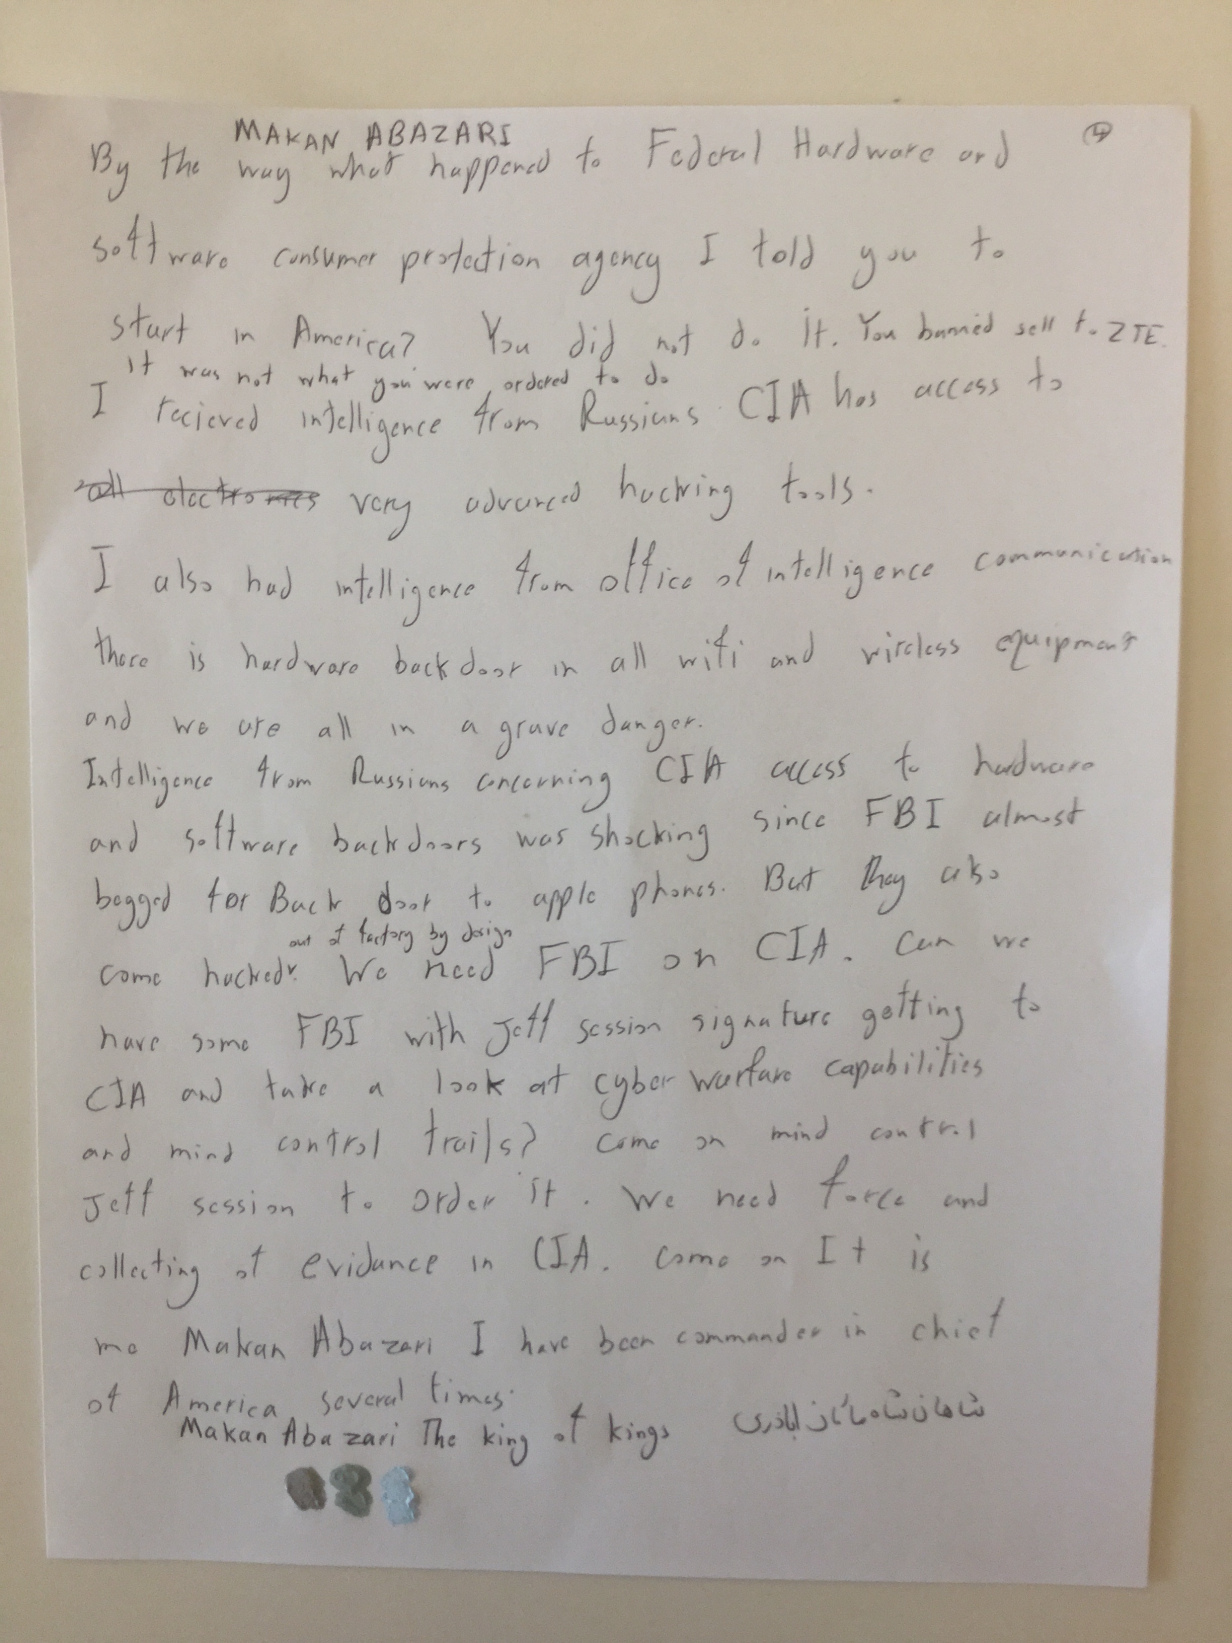 MAKAN ABAZARI
4
By the way what happened to Federal Hardware and
software consumer protection agency I told you to
start in America? You did not do it. You banned sell to ZTE.
it was not what you were ordered to do
I recieved intelligence from Russians CIA has access to
all electronics very advanced hacking tools.
I also had intelligence from office of intelligence communication
there is hardware backdoor in all wifi and wireless equipment
and we are all in a grave danger.
Intelligence from Russians concerning CIA access to hardware
and software backdoors was shocking since FBI almost
begged for Back door to apple phones. But they also
out of factory by design
come hacked. We need FBI on CIA. Can we
have some FBI with Jeff session signature getting to
CIA and take a look at cyber warfare capabilities
and mind control trails? Come on mind control
Jeff session to order it. We need force and
collecting of evidance in CIA. Come on It is
me Makan Abazari I have been commander in chief
of America several times.
Makan Abazari The king of kings شاهان شاه ماکان اباذری